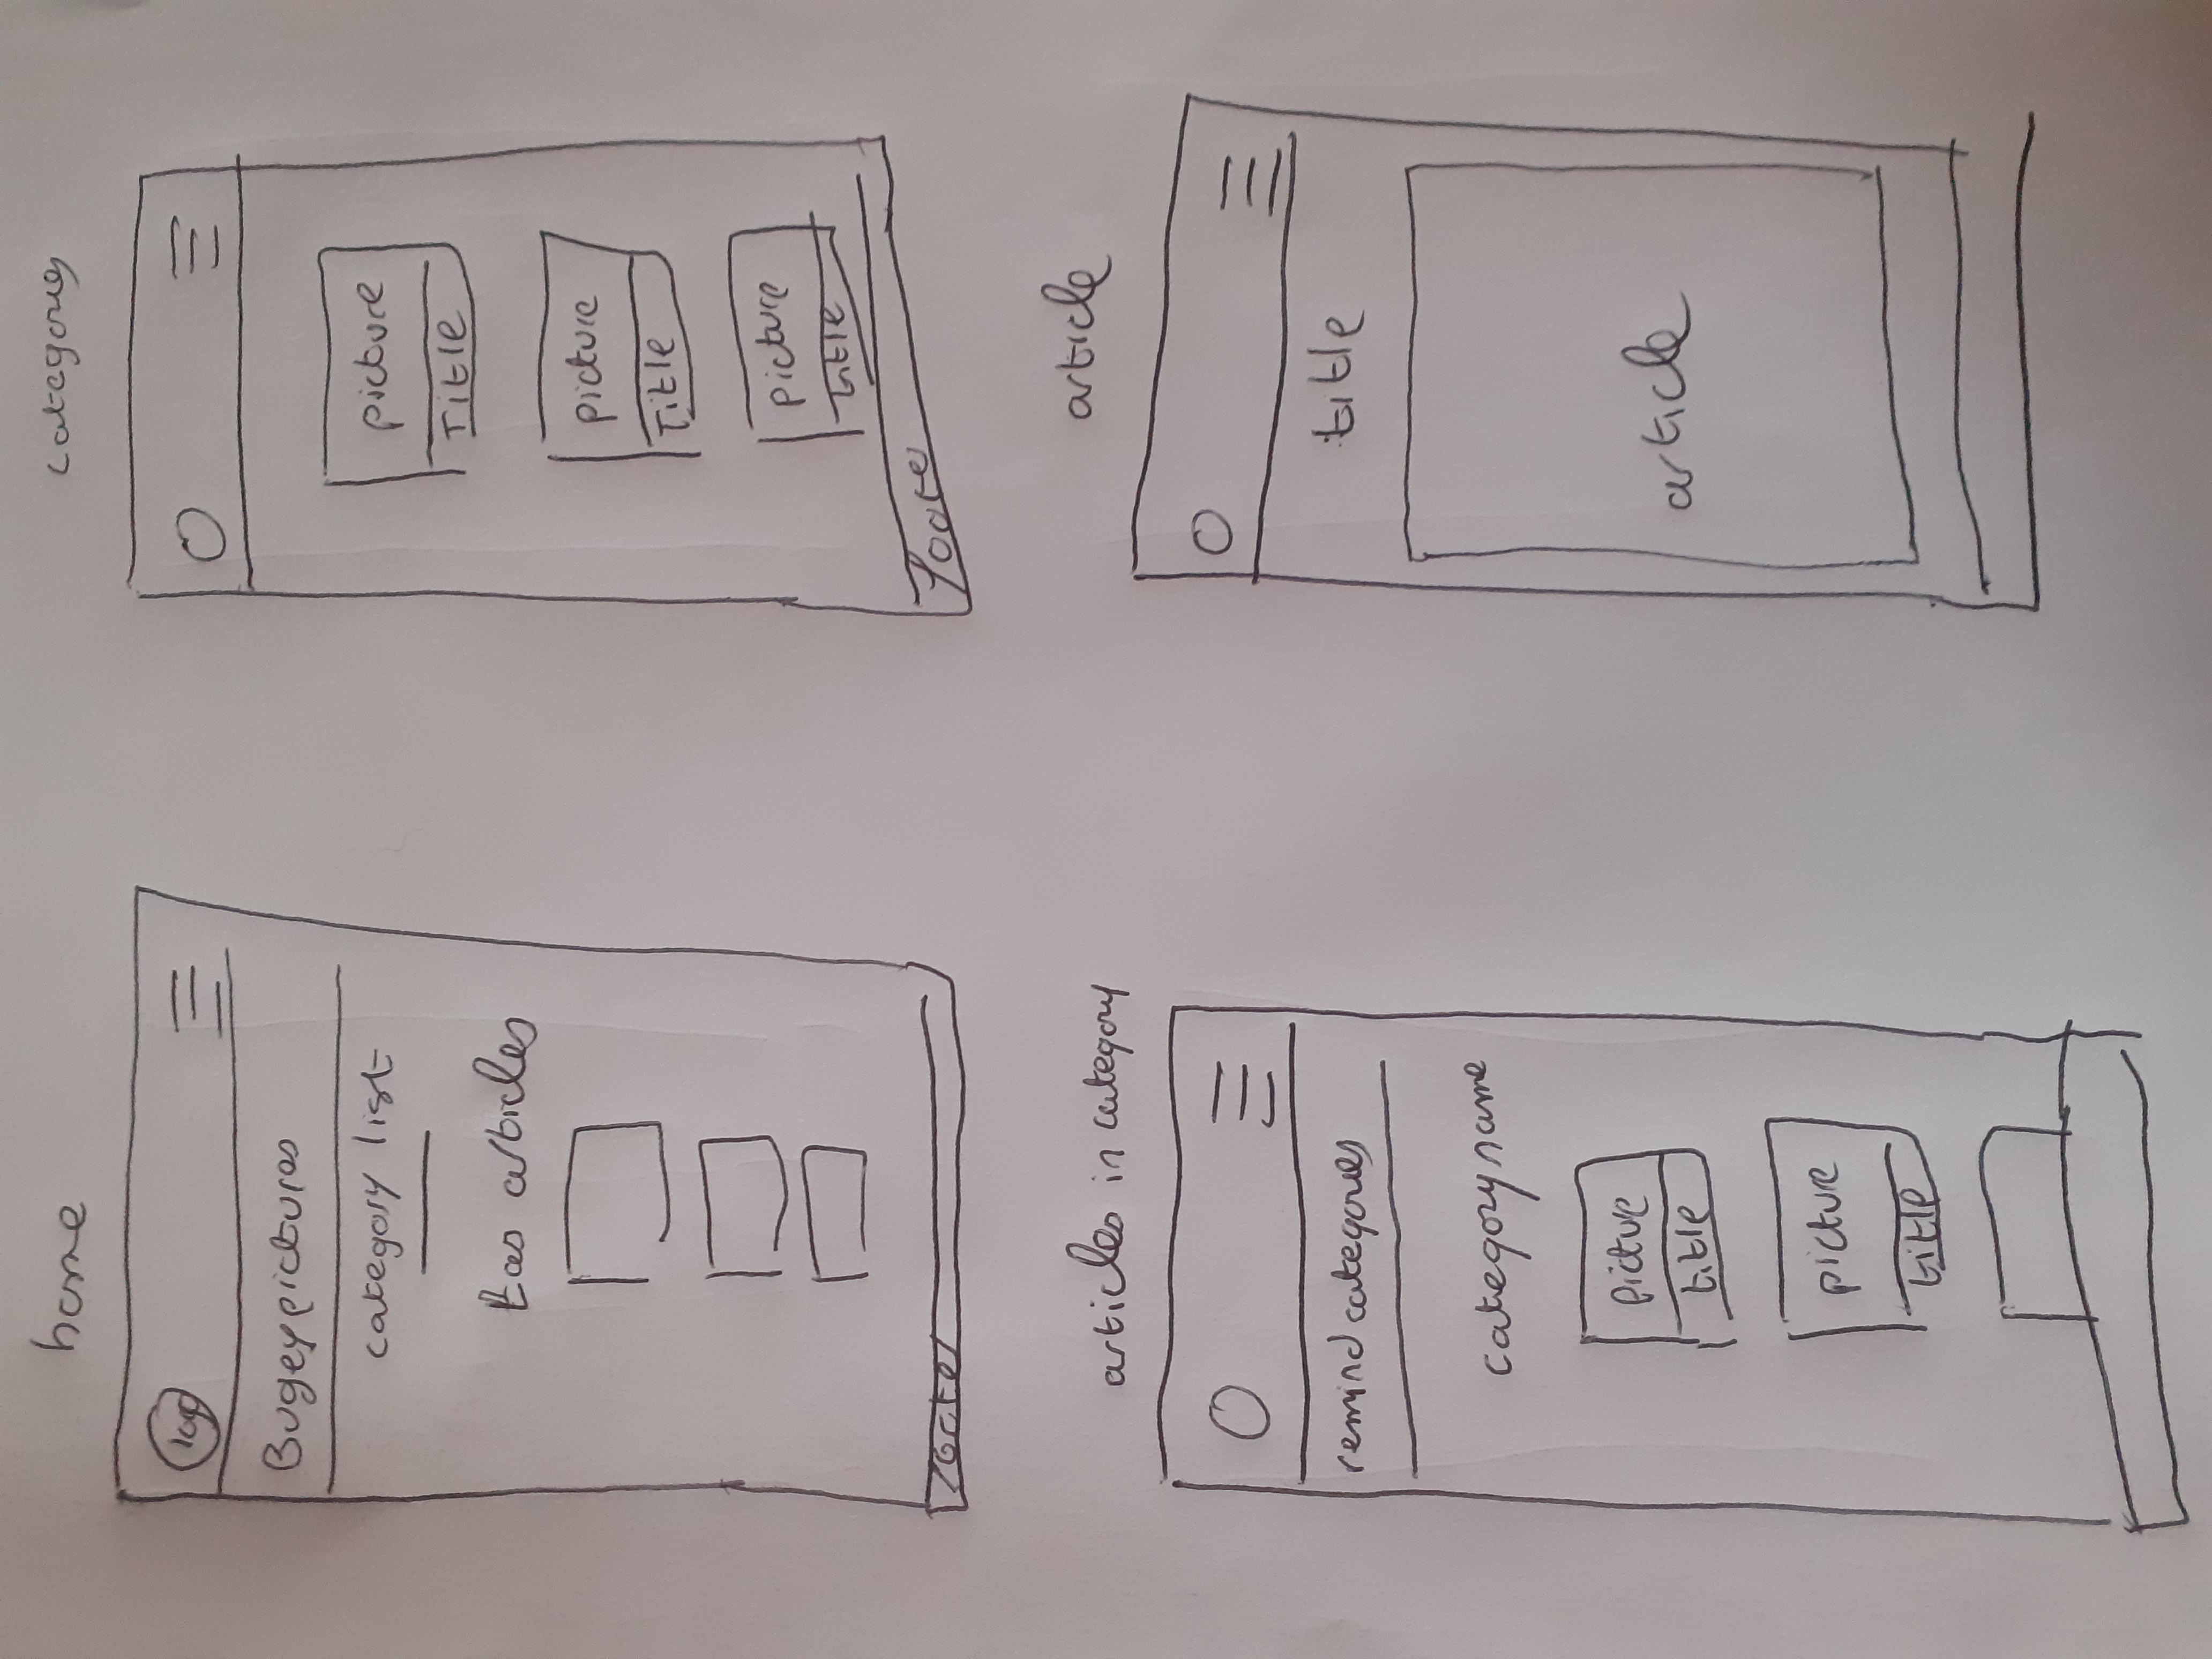 home
logo
Bugey pictures
category list
articles
footer
categories
picture
Title
picture
Title
picture
title
footer
articles in category
remind categories
category name
picture
title
picture
title
article
title
article